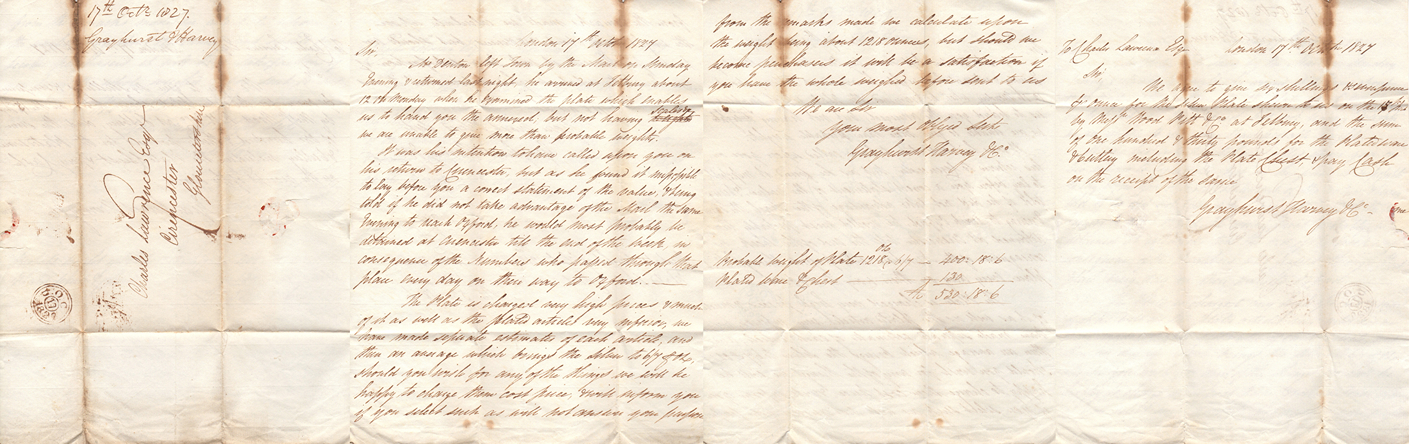 17th Octr 1827.
Grayhurst & Harvey
Charles Lawrence Esqr
Cirencester
Gloucestershire
London 17th Octobr 1827
Sir
left town by the Mail on Sunday
Evening & returned last night. he arrived at Tetbury about
12 on Monday when he examined the plate which enables
us to hand you the annexed, but not having scales or weights
we are unable to give more than probable weights.
It was his intention to have called upon you on
his return to Cirencester, but as he found it impossible
to lay before you a correct statement of the value, & being
told if he did not take advantage of the Mail the same
Evening to reach Oxford, he would most probably be
detained at Cirencester till the end of the week in
consequence of the Numbers who passed through that
place every day on their way to Oxford. —
The Plate is charged very high prices & much
of it as well as the plated articles very inferior, we
have made separate estimates of each article, and
then an average which brings the silver to 6/7 ℔ oz,
should you wish for any of the things we will be
happy to charge them cost price, & will inform you
if you select such as will not answer your purpose
from the remarks made we calculate upon
the weight being about 1218 ounces, but should we
become purchasers it will be a satisfaction if
you have the whole weighed before sent to us
We are Sir
Your most Obged Servts
Grayhurst Harvey & Co
Probable weight of Plate 1218 oz 6/7 — 400..18..6
Plated Ware & Chest — 130
530..18..6
To Charles Lawrence Esq London 17th Octobr 1827
Sir,
We agree to give Six Shillings & sevenpence
℔ ounce for the silver Plate shewn to us on the 15 Inst
by Messrs Wood & Co at Tetbury, and the sum
of One hundred & thirty pounds for the Plated ware
& Cutlery including the Plate Chest & pay Cash
on the receipt of the same
Grayhurst Harvey & Co